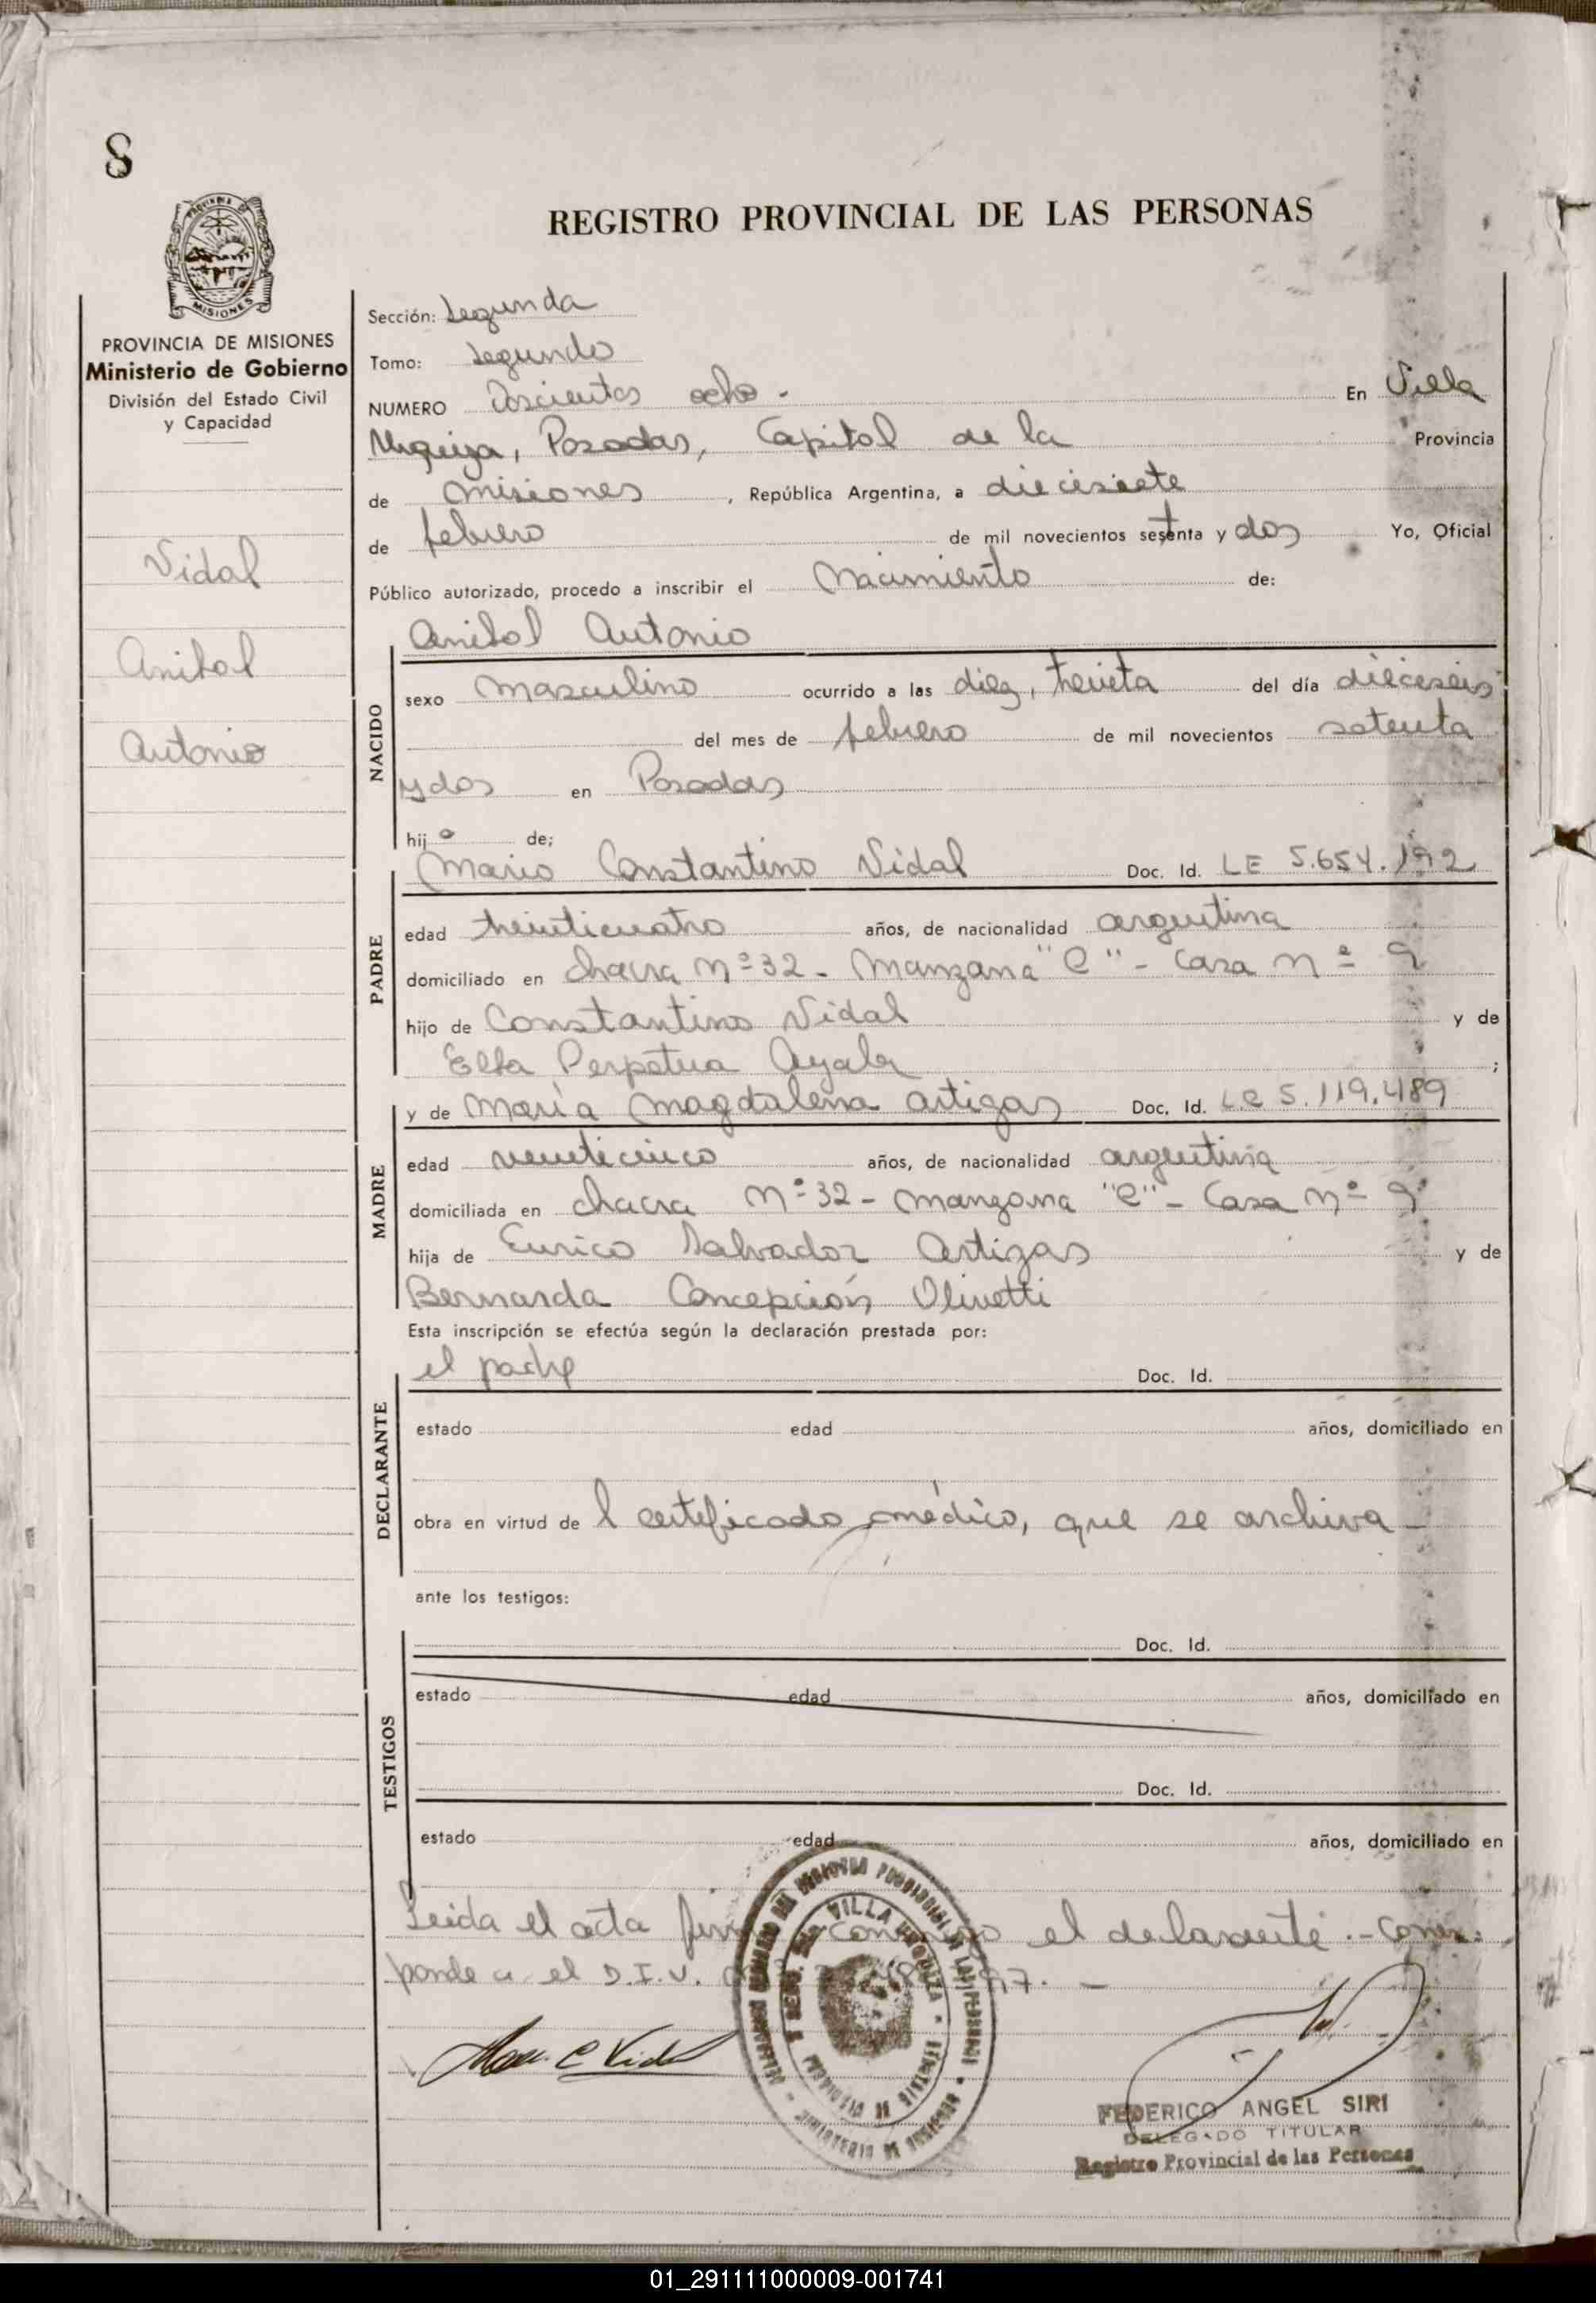 8
REGISTRO PROVINCIAL DE LAS PERSONAS
PROVINCIA DE MISIONES
Ministerio de Gobierno
División del Estado Civil
y Capacidad
Vidal
Anibal
Antonio
Sección: Segunda
Tomo: Segundo
NUMERO Doscientos ocho - En Villa
Urquiza, Posadas, Capital de la Provincia
de Misiones, República Argentina, a diecisiete
de febrero de mil novecientos setenta y dos Yo, Oficial
Público autorizado, procedo a inscribir el Nacimiento de:
Anibal Antonio
NACIDO
sexo masculino ocurrido a las diez, treinta del día dieciseis
del mes de febrero de mil novecientos setenta
y dos en Posadas
hijo de;
Mario Constantino Vidal Doc. Id. LE 5.654.192
PADRE
edad treinticuatro años, de nacionalidad argentina
domiciliado en chacra Nº 32 - Manzana "C" - Casa Nº 9
hijo de Constantino Vidal y de
Elta Perpetua Ayala ;
y de María Magdalena Artigas Doc. Id. L.C 5.119.489
MADRE
edad veinticinco años, de nacionalidad argentina
domiciliada en chacra Nº 32 - Manzana "C" - Casa Nº 9
hija de Eurico Salvador Artigas y de
Bernarda Concepción Olivetti
Esta inscripción se efectúa según la declaración prestada por:
el padre Doc. Id.
DECLARANTE
estado edad años, domiciliado en
obra en virtud del certificado médico, que se archiva -
ante los testigos:
Doc. Id.
TESTIGOS
estado edad años, domiciliado en
Doc. Id.
estado edad años, domiciliado en
Leida el acta conmigo el declarante.- Corres-
ponde a el D.I.U. 97. -
VILLA URQUIZA
Mario C Vidal
FEDERICO ANGEL SIRI
DELEGADO TITULAR
Registro Provincial de las Personas
01_291111000009-001741